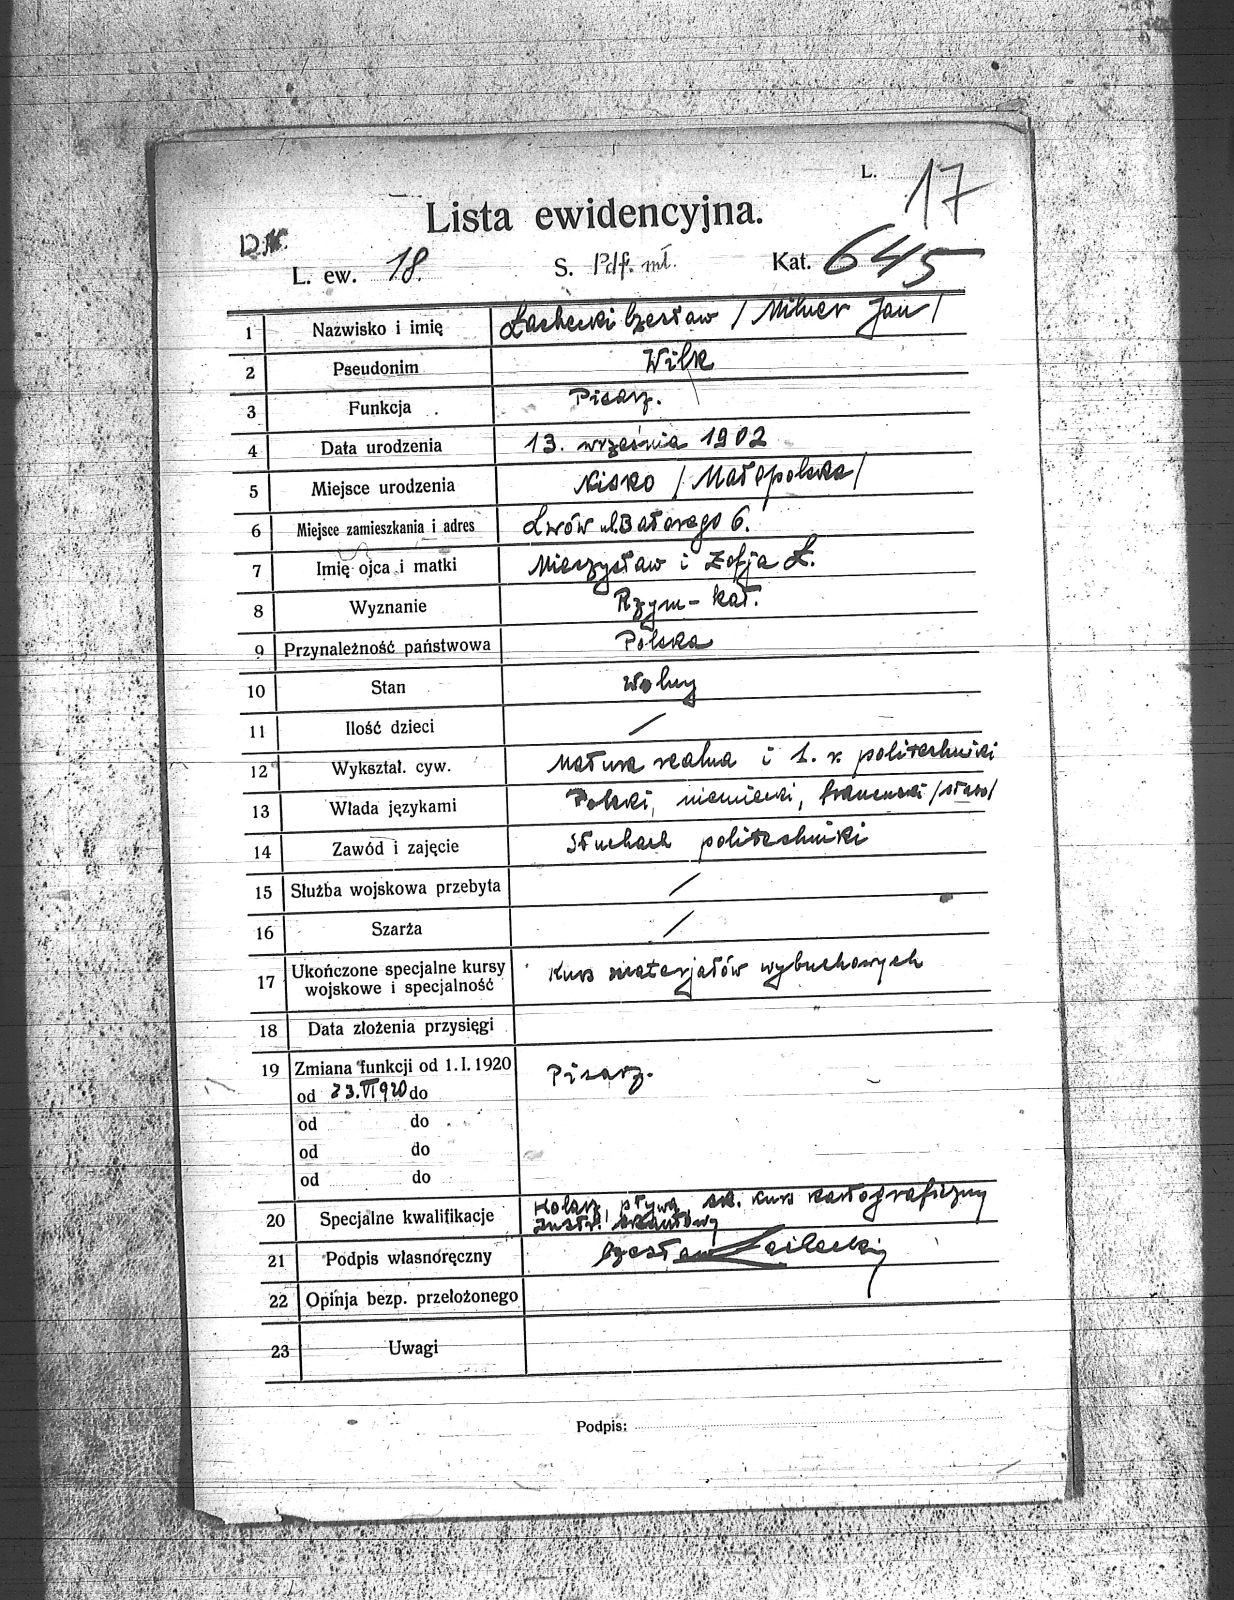 L. 17
Lista ewidencyjna.
L. ew. 18. S. Pdf. mł. Kat. 645
1 Nazwisko i imię Czesław / Milner Jan /
2 Pseudonim Wilk
3 Funkcja Pisarz.
4 Data urodzenia 13. września 1902
5 Miejsce urodzenia Nisko / Małopolska /
6 Miejsce zamieszkania i adres Lwów ul. Batorego 6.
7 Imię ojca i matki Mieczysław i Zofja Ł.
8 Wyznanie Rzym - kat.
9 Przynależność państwowa Polska
10 Stan Wolny
11 Ilość dzieci /
12 Wykształ. cyw. Matura realna i 1. r. politechniki
13 Włada językami Polski, niemiecki, francuski /słabo/
14 Zawód i zajęcie Słuchacz politechniki
15 Służba wojskowa przebyta /
16 Szarża /
17 Ukończone specjalne kursy Kurs materjałów wybuchowych
wojskowe i specjalność
18 Data złożenia przysięgi
19 Zmiana funkcji od 1. I. 1920 Pisarz.
od 23. VI 920 do
od do
od do
od do
20 Specjalne kwalifikacje Kolarz, pływa, sk. kurs kartograficzny
Instr. skautowy
21 Podpis własnoręczny Czesław
22 Opinja bezp. przełożonego
23 Uwagi
Podpis: